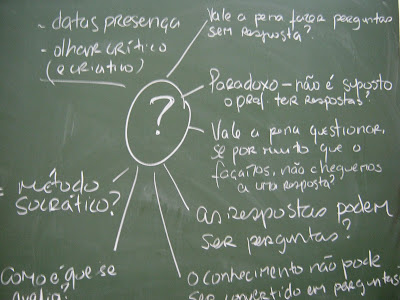 - datas presença
- olhar crítico
(e criativo)
Vale a pena fazer perguntas
sem resposta?
Paradoxo - não é suposto
o prof. ter respostas?
?
Vale a pena questionar,
se por muito que o
façamos, não cheguemos
a uma resposta?
= método
socrático?
as respostas podem
ser perguntas?
como é que se
avalia?
o conhecimento não pode
ser convertido em perguntas